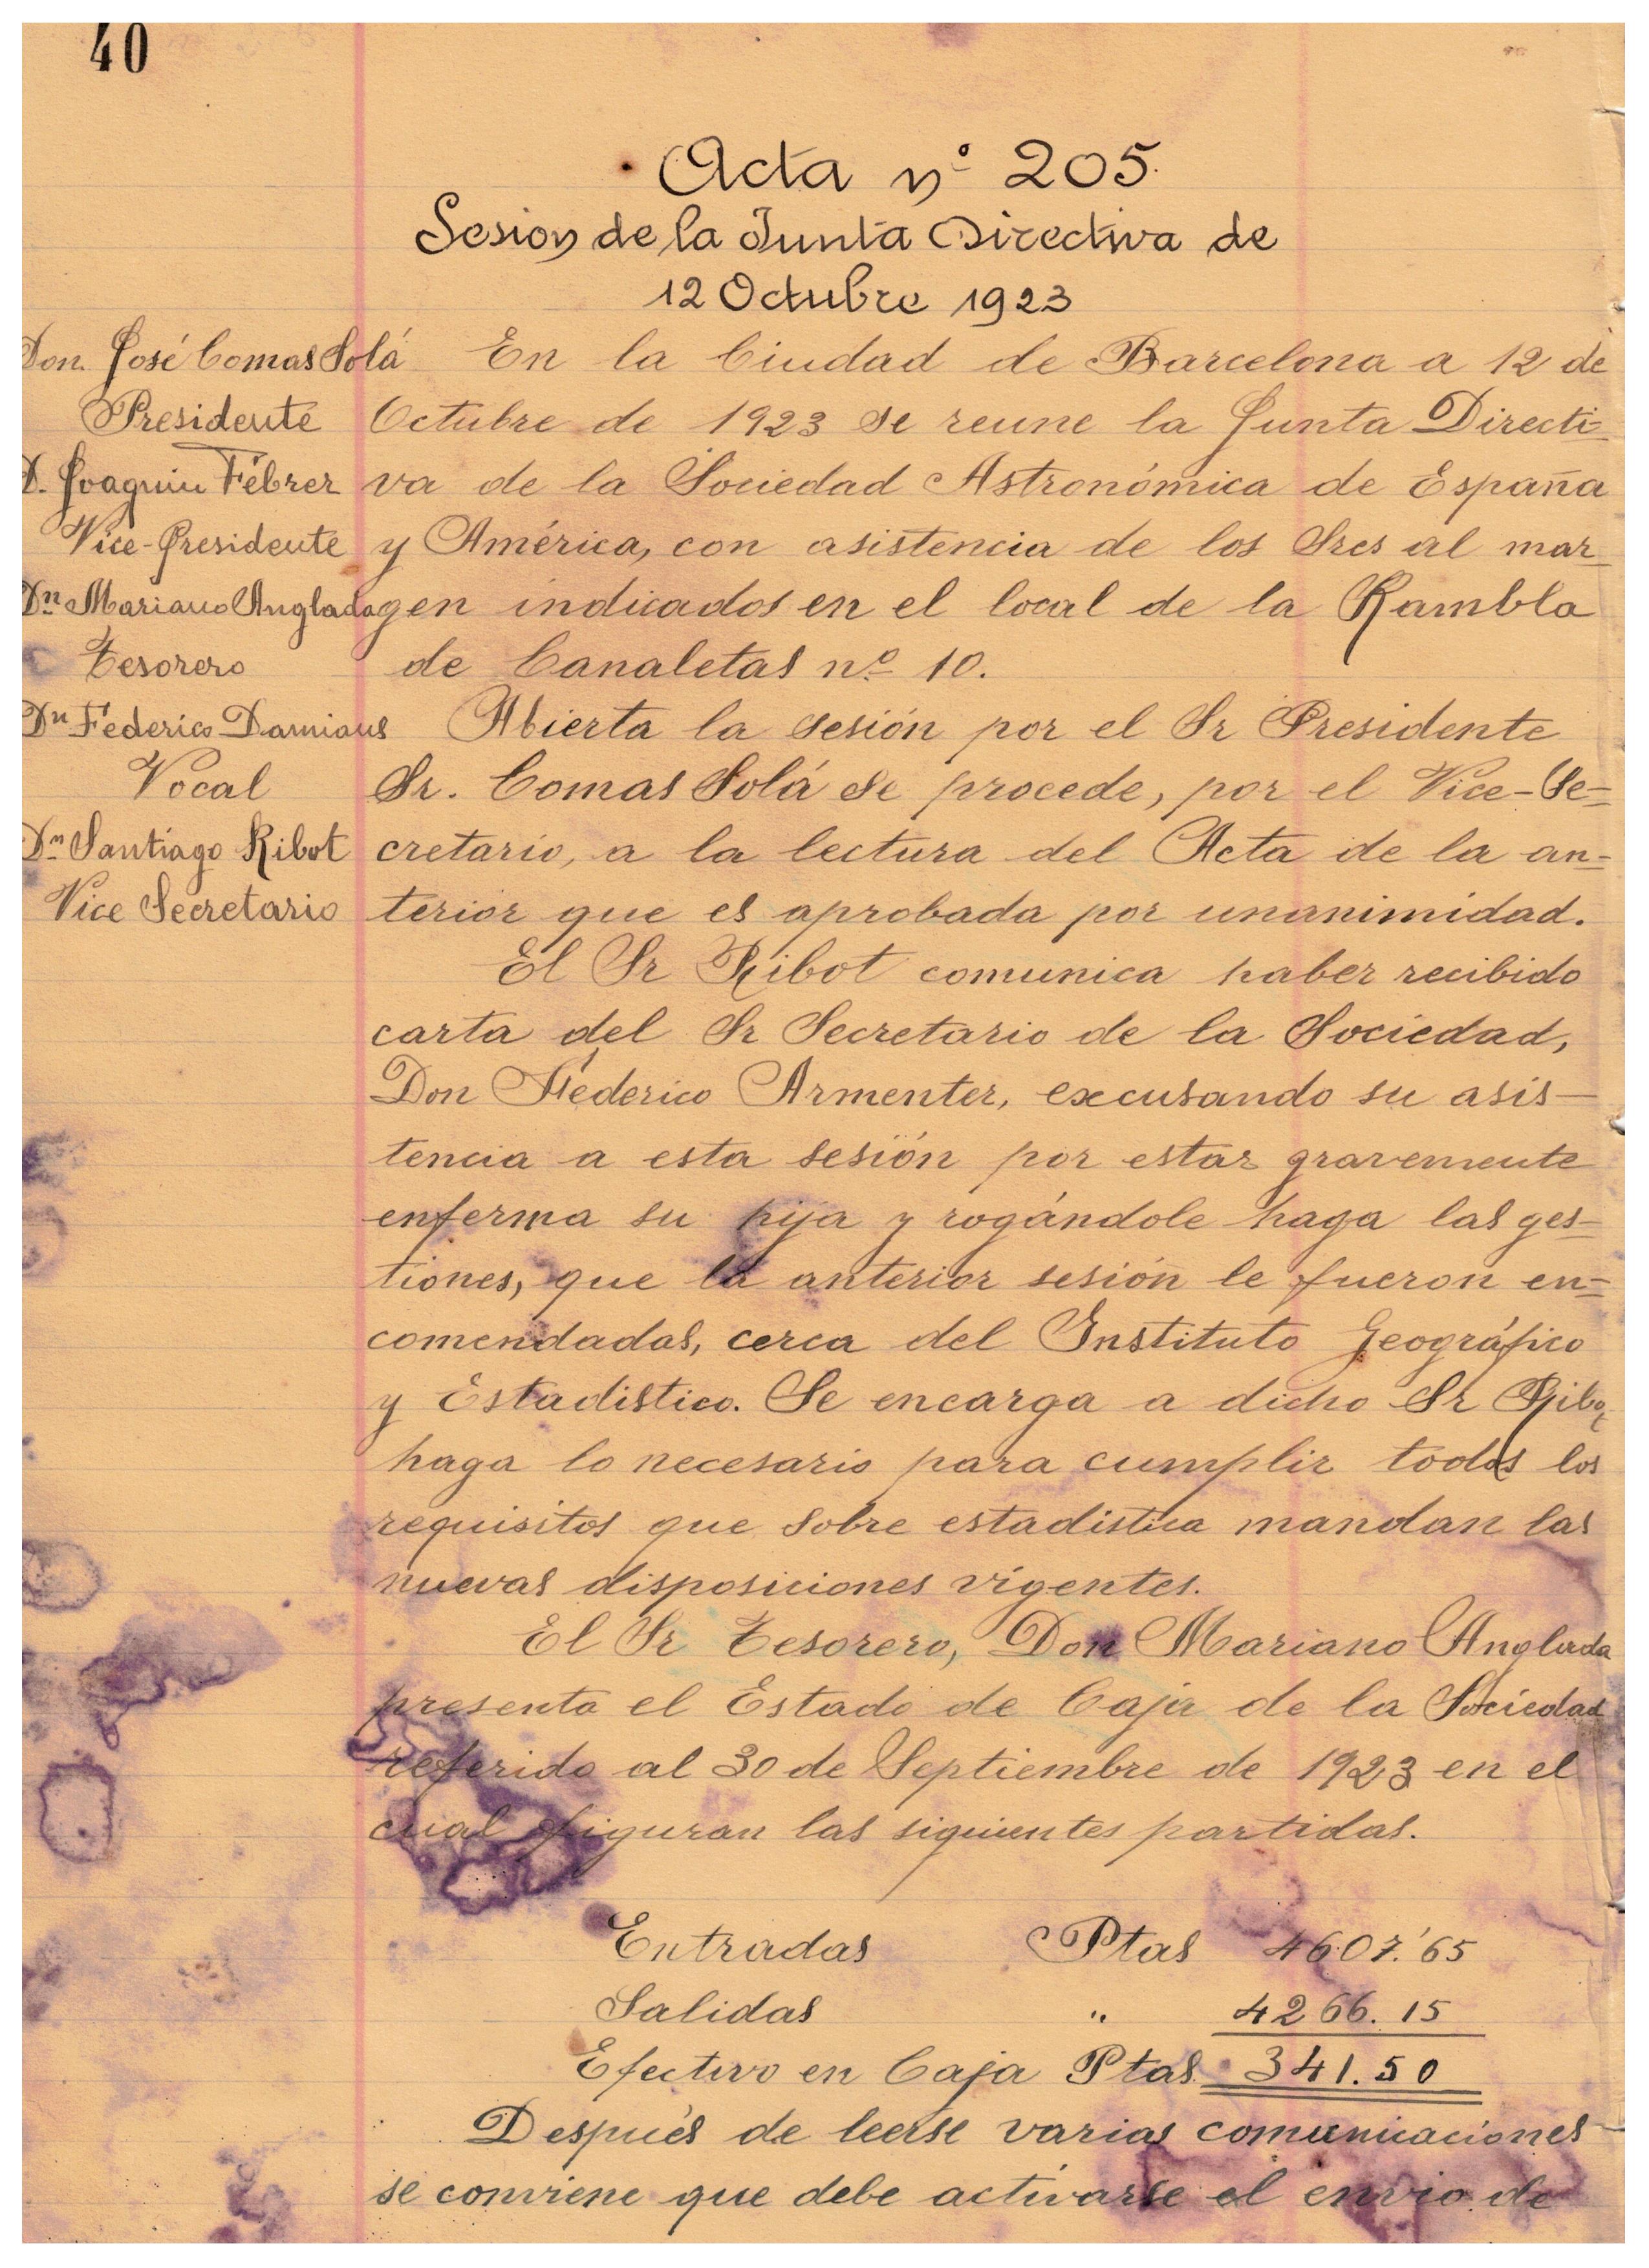 40
Acta nº 205.
Sesion de la Junta Directiva de
12 Octubre 1923
Don. José Comas Solá
Presidente
D. Joaquin Fébrer
Vice-Presidente
Dn Mariano Anglada
Tesorero
Dn Federico Damians
Vocal
Dn Santiago Ribot
Vice Secretario
En la Ciudad de Barcelona a 12 de
Octubre de 1923 se reune la Junta Directi-
va de la Sociedad Astronómica de España
y América, con asistencia de los Sres al mar
gen indicados en el local de la Rambla
de Canaletas nº 10.
Abierta la sesión por el Sr Presidente
Sr. Comas Solá se procede, por el Vice-Se=
cretario, a la lectura del Acta de la an=
terior que es aprobada por unanimidad.
El Sr Ribot comunica haber recibido
carta del Sr Secretario de la Sociedad,
Don Féderico Armenter, excusando su asis-
tencia a esta sesión por estar gravemente
enferma su hija y rogándole haga las ges=
tiones, que la anterior sesión le fueron en=
comendadas, cerca del Instituto Geográfico
y Estadistico. Se encarga a dicho Sr Ribot
haga lo necesario para cumplir todos los
requisitos que sobre estadistica mandan las
nuevas disposiciones vigentes.
El Sr Tesorero, Don Mariano Anglada
presenta el Estado de Caja de la Sociedad
referido al 30 de Septiembre de 1923 en el
cual figuran las siguientes partidas.
Entradas Ptas 4607.'65
Salidas " 4266.15
Efectivo en Caja Ptas. 341.50
Después de leerse varias comunicaciones
se conviene que debe activarse el envio de